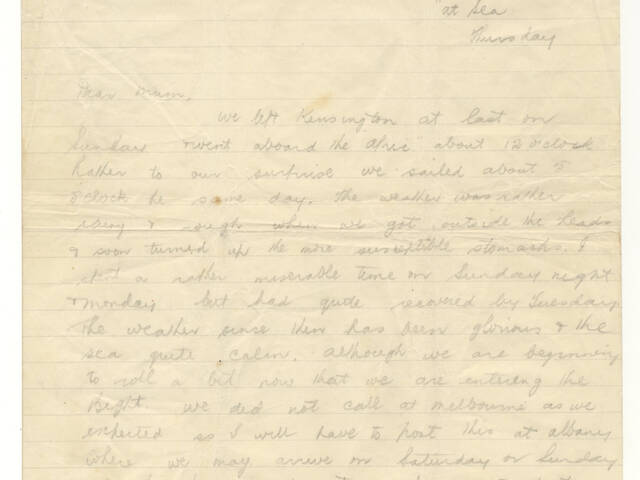 "at Sea
Thursday
Dear Mum,
We left Kensington at last on
Sunday & went aboard the Afric about 12 o'clock
Rather to our surprise we sailed about 5
o'clock the same day. The weather was rather
rainy & rough when we got outside the heads
& soon turned up the more susceptible stomachs. I
spent a rather miserable time on Sunday night
& Monday but had quite recovered by Tuesday.
The weather since then has been glorious & the
sea quite calm, although we are beginning
to roll a bit now that we are entering the
Bight. We did not call at Melbourne as we
expected so I will have to post this at Albany
where we may arrive on Saturday or Sunday